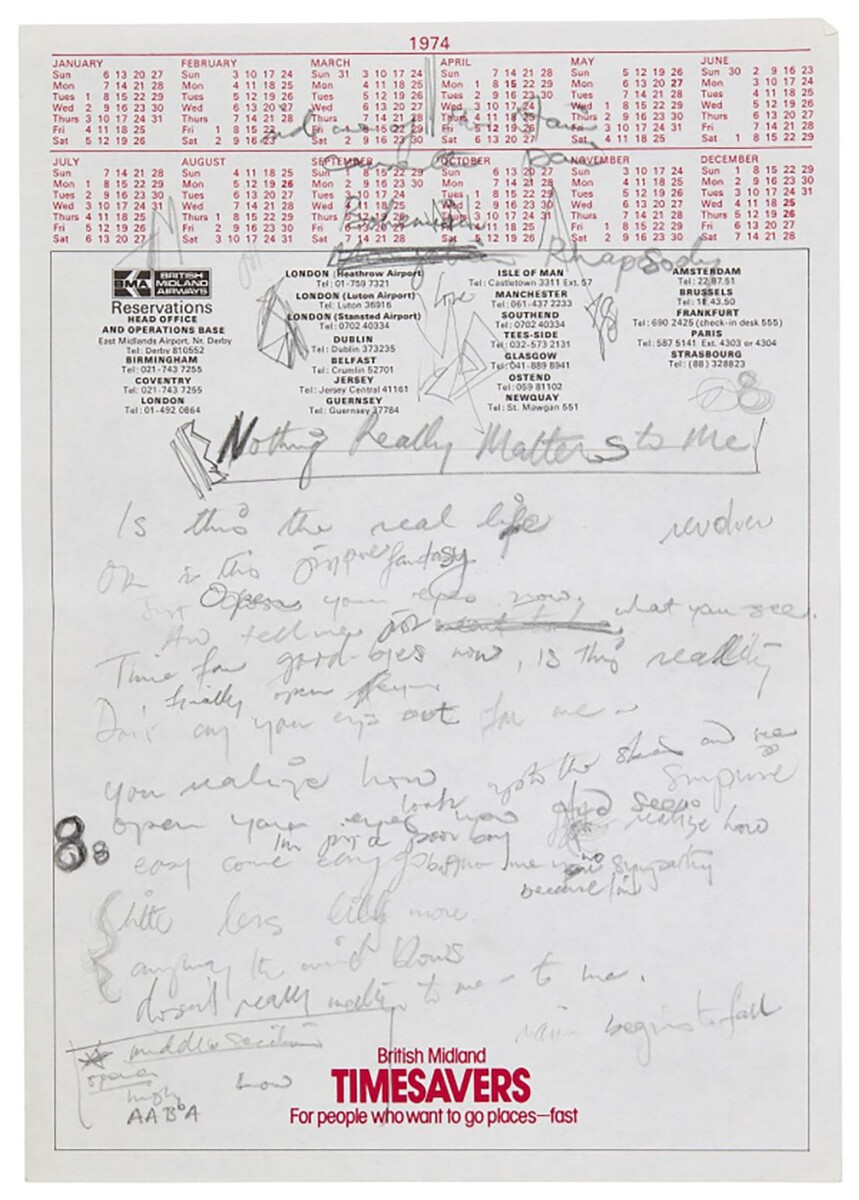 1974
JANUARY FEBRUARY MARCH APRIL MAY JUNE
Sun 6 13 20 27 Sun 3 10 17 24 Sun 31 3 10 17 24 Sun 7 14 21 28 Sun 5 12 19 26 Sun 30 2 9 16 23
Mon 7 14 21 28 Mon 4 11 18 25 Mon 4 11 18 25 Mon 1 8 15 22 29 Mon 6 13 20 27 Mon 3 10 17 24
Tues 1 8 15 22 29 Tues 5 12 19 26 Tues 5 12 19 26 Tues 2 9 16 23 30 Tues 7 14 21 28 Tues 4 11 18 25
Wed 2 9 16 23 30 Wed 6 13 20 27 Wed 6 13 20 27 Wed 3 10 17 24 Wed 1 8 15 22 29 Wed 5 12 19 26
Thurs 3 10 17 24 31 Thurs 7 14 21 28 Thurs 7 14 21 28 Thurs 4 11 18 25 Thurs 2 9 16 23 30 Thurs 6 13 20 27
Fri 4 11 18 25 Fri 1 8 15 22 Fri 1 8 15 22 29 Fri 5 12 19 26 Fri 3 10 17 24 31 Fri 7 14 21 28
Sat 5 12 19 26 Sat 2 9 16 23 Sat 2 9 16 23 30 Sat 6 13 20 27 Sat 4 11 18 25 Sat 1 8 15 22 29
JULY AUGUST SEPTEMBER OCTOBER NOVEMBER DECEMBER
Sun 7 14 21 28 Sun 4 11 18 25 Sun 1 8 15 22 29 Sun 6 13 20 27 Sun 3 10 17 24 Sun 1 8 15 22 29
Mon 1 8 15 22 29 Mon 5 12 19 26 Mon 2 9 16 23 30 Mon 7 14 21 28 Mon 4 11 18 25 Mon 2 9 16 23 30
Tues 2 9 16 23 30 Tues 6 13 20 27 Tues 3 10 17 24 Tues 1 8 15 22 29 Tues 5 12 19 26 Tues 3 10 17 24 31
Wed 3 10 17 24 31 Wed 7 14 21 28 Wed 4 11 18 25 Wed 2 9 16 23 30 Wed 6 13 20 27 Wed 4 11 18 25
Thurs 4 11 18 25 Thurs 1 8 15 22 29 Thurs 5 12 19 26 Thurs 3 10 17 24 31 Thurs 7 14 21 28 Thurs 5 12 19 26
Fri 5 12 19 26 Fri 2 9 16 23 30 Fri 6 13 20 27 Fri 4 11 18 25 Fri 1 8 15 22 29 Fri 6 13 20 27
Sat 6 13 20 27 Sat 3 10 17 24 31 Sat 7 14 21 28 Sat 5 12 19 26 Sat 2 9 16 23 30 Sat 7 14 21 28
Bohemian
Rhapsody
BMA BRITISH MIDLAND AIRWAYS
Reservations
HEAD OFFICE
AND OPERATIONS BASE
East Midlands Airport, Nr. Derby
Tel: Derby 810552
BIRMINGHAM
Tel: 021-743 7255
COVENTRY
Tel: 021-743 7255
LONDON
Tel: 01-492 0864
LONDON (Heathrow Airport)
Tel: 01-759 7321
LONDON (Luton Airport)
Tel: Luton 36916
LONDON (Stansted Airport)
Tel: 0702 40334
DUBLIN
Tel: Dublin 373235
BELFAST
Tel: Crumlin 52701
JERSEY
Tel: Jersey Central 41161
GUERNSEY
Tel: Guernsey 37784
ISLE OF MAN
Tel: Castletown 3311 Ext. 57
MANCHESTER
Tel: 061-437 2233
SOUTHEND
Tel: 0702 40334
TEES-SIDE
Tel: 032-573 2131
GLASGOW
Tel: 041-889 8941
OSTEND
Tel: 059 81102
NEWQUAY
Tel: St. Mawgan 551
AMSTERDAM
Tel: 22.87.51
BRUSSELS
Tel: 18.43.50
FRANKFURT
Tel: 690 2425 (check-in desk 555)
PARIS
Tel: 587 5141 Ext. 4303 or 4304
STRASBOURG
Tel: (88) 328823
Nothing Really Matters to Me
Is this the real life revolver
Or is this fantasy
Just Open your eyes now, what you see.
tell me
Time for good-byes now, is this reality
finally open
Don't cry your eyes out for me
look up to the skies and see
you realize how surprise
open your eyes now and see realize how
I'm just a poor boy
easy come easy go no sympathy
because I'm
little less little more.
anyway the wind blows
doesn't really matter to me - to me.
rain begins to fall
middle section
opera
how
AABA
8 8
British Midland
TIMESAVERS
For people who want to go places—fast